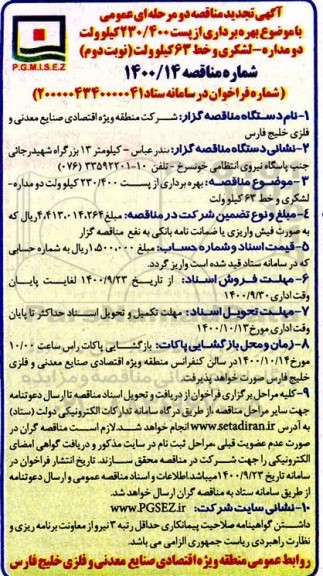 آگهی تجدید مناقصه دو مرحله ای عمومی
با موضوع بهره برداری از پست ۲۳۰/۴۰۰ کیلو ولت
دو مداره - لشکری و خط ۶۳ کیلو ولت (نوبت دوم)
P.G.M.I.S.E.Z
شماره مناقصه ۱۴۰۰/۱۴
(شماره فراخوان در سامانه ستاد ۲۰۰۰۰۰۴۳۴۰۰۰۰۰۴۱)
۱-نام دستگاه مناقصه گزار: شرکت منطقه ویژه اقتصادی صنایع معدنی و
فلزی خلیج فارس
۲-نشانی دستگاه مناقصه گزار: بندرعباس - کیلومتر ۱۳ بزرگراه شهید رجائی
جنب پاسگاه نیروی انتظامی خونسرخ - تلفن ۱۰-۳۳۵۹۲۲۰۱ (۰۷۶)
۳-موضوع مناقصه: بهره برداری از پست ۲۳۰/۴۰۰ کیلو ولت دو مداره-
لشکری و خط ۶۳ کیلو ولت
۴-مبلغ و نوع تضمین شرکت در مناقصه: مبلغ ۴,۴۱۳,۰۱۴,۲۶۴ ریال که
به صورت فیش واریزی یا ضمانت نامه بانکی به نفع مناقصه گزار
۵-قیمت اسناد و شماره حساب: مبلغ ۱,۵۰۰,۰۰۰ ریال به شماره حسابی
که در سامانه ستاد قید شده است واریز گردد.
۶-مهلت فروش اسناد: از تاریخ ۱۴۰۰/۹/۲۳ لغایت پایان
وقت اداری ۱۴۰۰/۹/۳۰
۷-مهلت تحویل اسناد: مهلت تکمیل و تحویل اسناد حداکثر تا پایان
وقت اداری مورخ ۱۴۰۰/۱۰/۱۳
۸-زمان و محل بازگشایی پاکات: بازگشایی پاکات راس ساعت ۱۰/۰۰
مورخ ۱۴۰۰/۱۰/۱۴ در سالن کنفرانس منطقه ویژه اقتصادی صنایع معدنی و فلزی
خلیج فارس صورت خواهد پذیرفت.
۹-کلیه مراحل برگزاری فراخوان از دریافت و تحویل اسناد مناقصه تا ارسال دعوتنامه
جهت سایر مراحل مناقصه از طریق درگاه سامانه تدارکات الکترونیکی دولت (ستاد)
به آدرس www.setadiran.ir انجام خواهد شد. لازم است مناقصه گران در
صورت عدم عضویت قبلی، مراحل ثبت نام در سایت مذکور و دریافت گواهی امضای
الکترونیکی را جهت شرکت در مناقصه محقق سازند. تاریخ انتشار فراخوان در
سامانه تاریخ ۱۴۰۰/۹/۲۳ میباشد. اطلاعات و اسناد مناقصه عمومی و ارسال دعوتنامه
از طریق سامانه ستاد به مناقصه گران ارسال خواهد شد.
۱۰-نشانی سایت شرکت: www.PGSEZ.ir
داشتن گواهینامه صلاحیت پیمانکاری حداقل رتبه ۳ نیرو از معاونت برنامه ریزی و
نظارت راهبردی ریاست جمهوری الزامی می باشد.
روابط عمومی منطقه ویژه اقتصادی صنایع معدنی و فلزی خلیج فارس